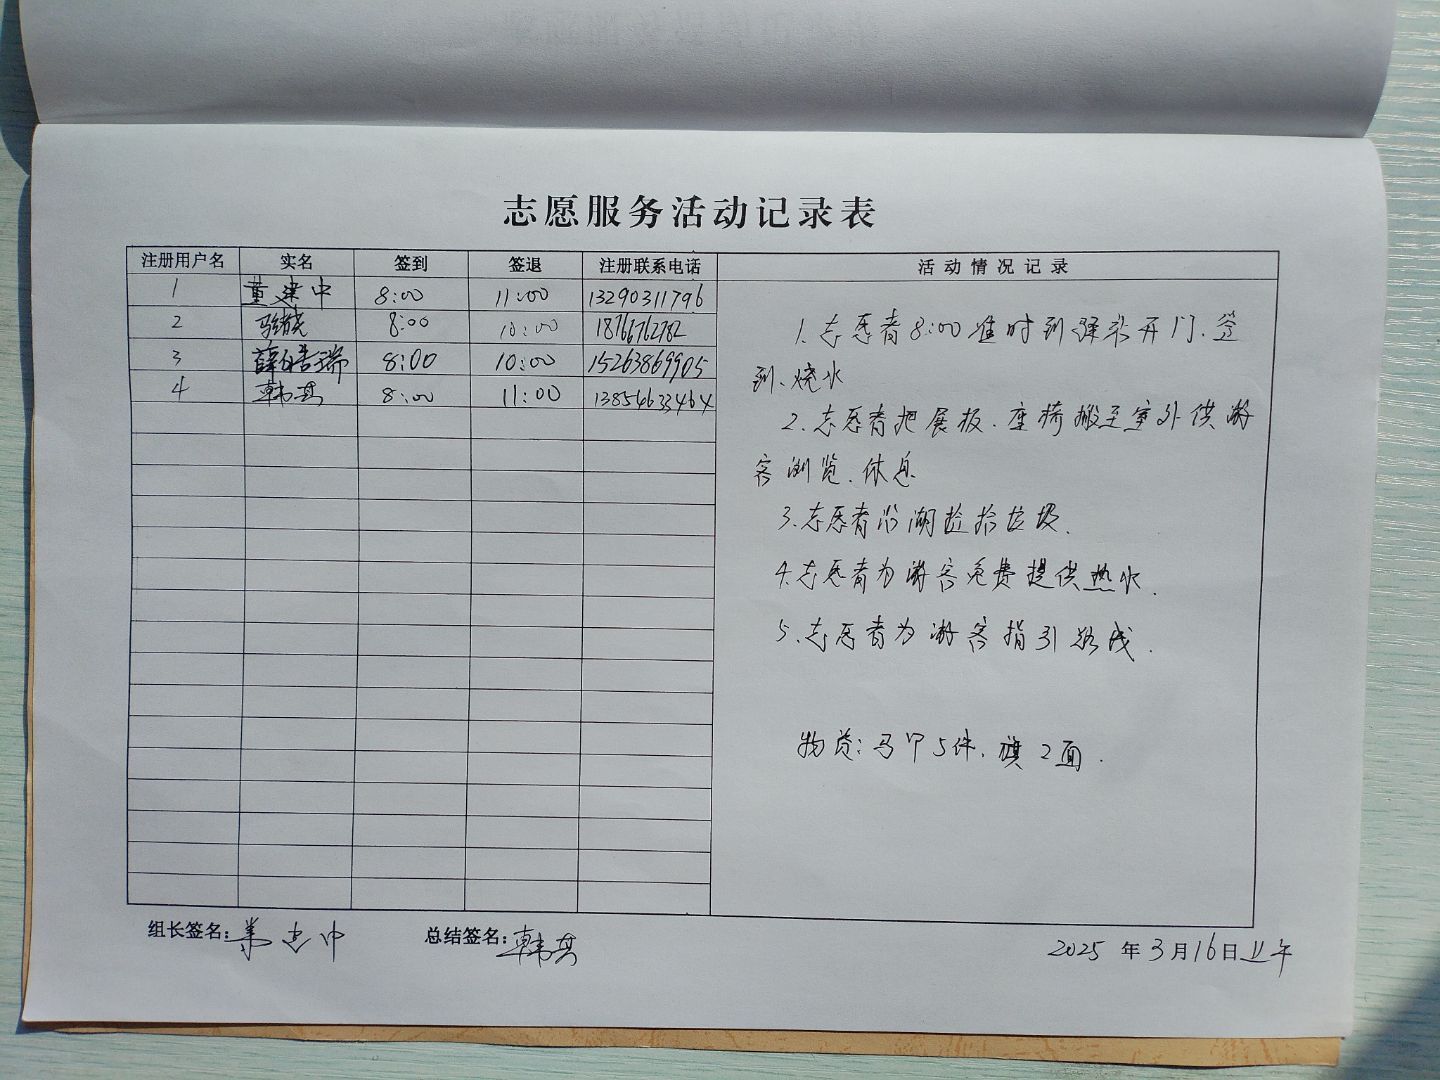 志愿服务活动记录表
注册用户名 实名 签到 签退 注册联系电话 活动情况记录
1 董建中 8:00 11:00 13290311796
2 8:00 10:00 18766762782
3 薛皓瑞 8:00 10:00 15263869905
4 韩其 8:00 11:00 13854633464
1.志愿者8:00准时到驿站开门、签
到、烧水
2.志愿者把展板、座椅搬至室外供游
客浏览、休息
3.志愿者沿湖捡拾垃圾.
4.志愿者为游客免费提供热水.
5.志愿者为游客指引路线.
物资:马甲5件、旗2面.
组长签名:董建中 总结签名:韩其 2025年3月16日上午